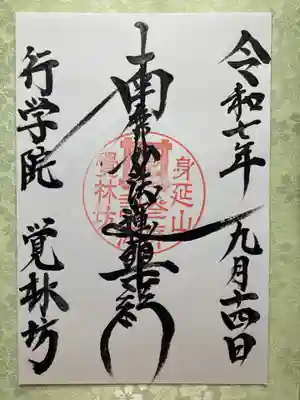 令和七年 九月十四日
南無妙法蓮華経
行学院 覚林坊
身延山
覺林坊